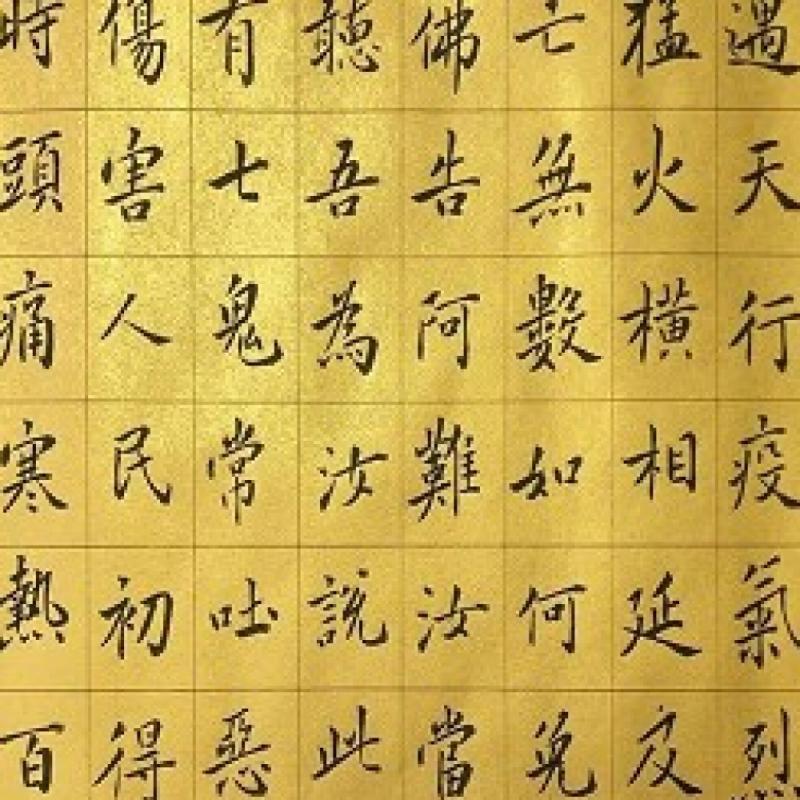 遇天行疫氣烈
猛火橫相延及
亡無數如何免
佛告阿難汝當
聽吾為汝說此
有七鬼常吐惡
傷害人民初得
時頭痛寒熱百